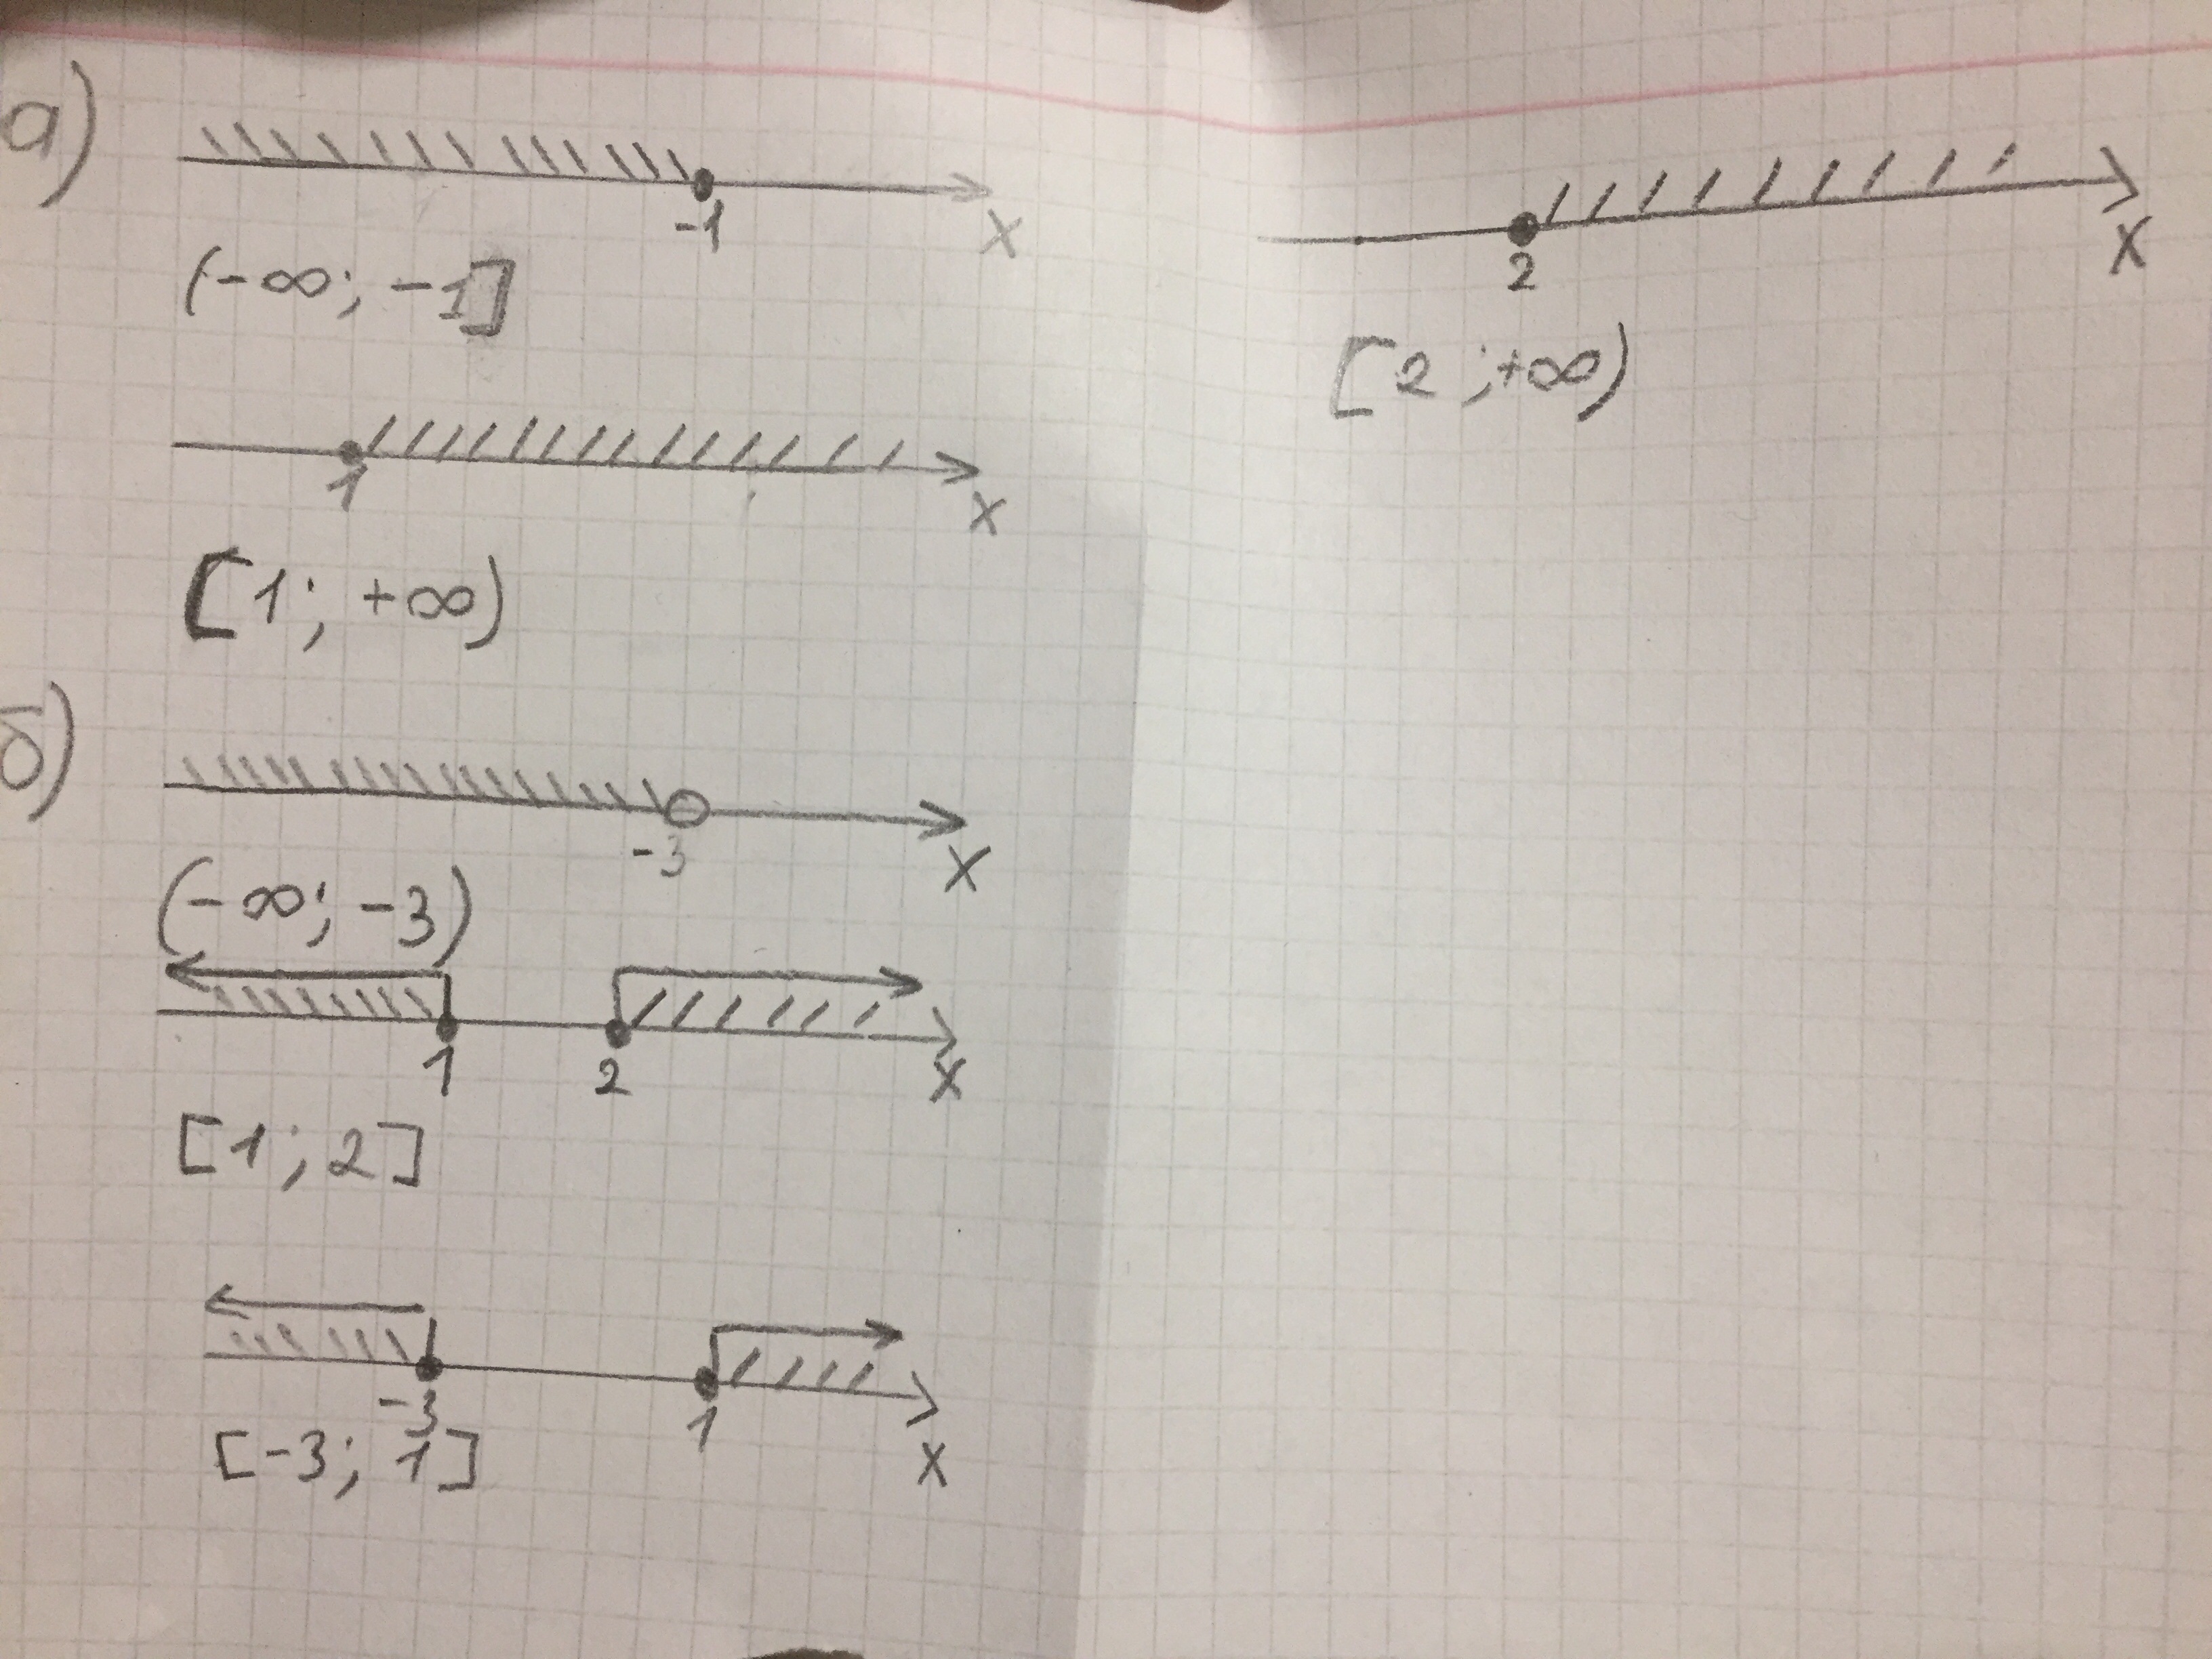 а)
-1
x
(-∞; -1]
2
x
[2; +∞)
1
x
[1; +∞)
б)
-3
x
(-∞; -3)
1 2 x
[1; 2]
-3 1 x
[-3; 1]